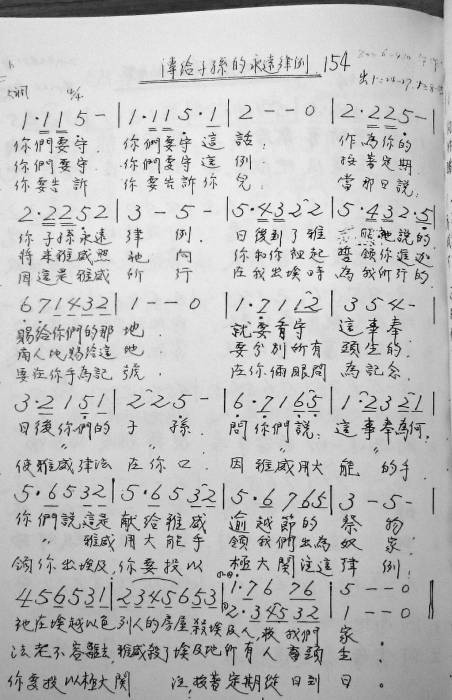 傳給子孫的永遠律例 154
1·115- | 1·115·1 | 2--0 | 2·225- |
你們要守 你們要守這 話. 作為你的
你們要守 你們要守這 例. 按著定期
你要告訴 你要告訴你 兒. 當那日說
2·2252 | 3-5- | 5·4322 | 5·432·5 |
你子孫永遠 律例. 日後到了雅 祂說的
將來雅威照 祂向 你和你祖起 誓領你進迦
因這是雅威 所行 在我出埃時 為我所行的
671432 | 1--0 | 1·7112 | 354- |
賜給你們的那 地. 就要看守 這事奉
南人地賜給這 地 要分別所有 頭生的.
要在你手為記 號. 在你倆眼間 為記念.
3·2151 | 225- | 6·7165 | 12321 |
日後你們的 子孫. 問你們說: 這事奉為何.
使雅威律法 在你口. 因雅威用大 能的手
5·6532 | 5·6532 | 5·6765 | 3-5- |
你們說這是 獻給雅威 逾越節的 祭物
〃 雅威用大能手 領我們出為奴 家.
領你出埃及.你要投以 極大關注這 律例;
456531 | 2345653 | 1·7676 | 5--0 |
2·34532 | 1--0 |
祂在埃越以色列人的房屋.殺埃及人,救我們 家.
法老不容離去,雅威殺了埃及地所有人畜頭 生.
你要投以極大關 注,按著定期從日到 日.